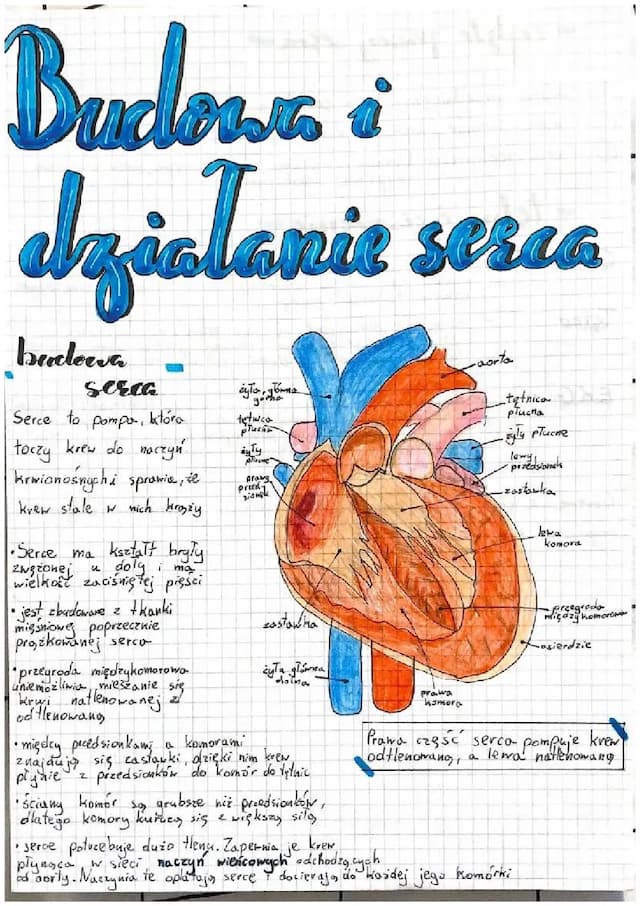 Budowa i
działanie serca
budowa
serca
Serce to pompa, która
toczy krew do naczyń
krwionośnych i sprawia, że
krew stale w nich krąży
• Serce ma kształt bryły
zwężonej u doły i ma
wielkość zaciśniętej pięści
• jest zbudowane z tkanki
mięśniowej poprzecznie
prążkowanej serca
• przegroda międzykomorowa
uniemożliwia mieszanie się
krwi natlenowanej z
odtlenowaną
• między przedsionkami a komorami
znajdują się zastawki, dzięki nim krew
płynie z przedsionków do komór do tętnic
• ściany komór są grubsze niż przedsionków,
dlatego komory kurczą się z większą siłą
• serce potrzebuje dużo tlenu. Zapewnia je krew
płynąca w sieci naczyń wieńcowych odchodzących
od aorty. Naczynia te oplatają serce i docierają do każdej jego komórki
żyła główna
górna
tętnica
płucna
żyły
płucne
prawy
przed
sionek
zastawka
żyła główna
dolna
aorta
tętnica
płucna
żyły płucne
lewy
przedsionek
zastawka
lewa
komora
przegroda
międzykomorowa
osierdzie
prawa
komora
Prawa część serca pompuje krew
odtlenowaną, a lewa natlenowaną